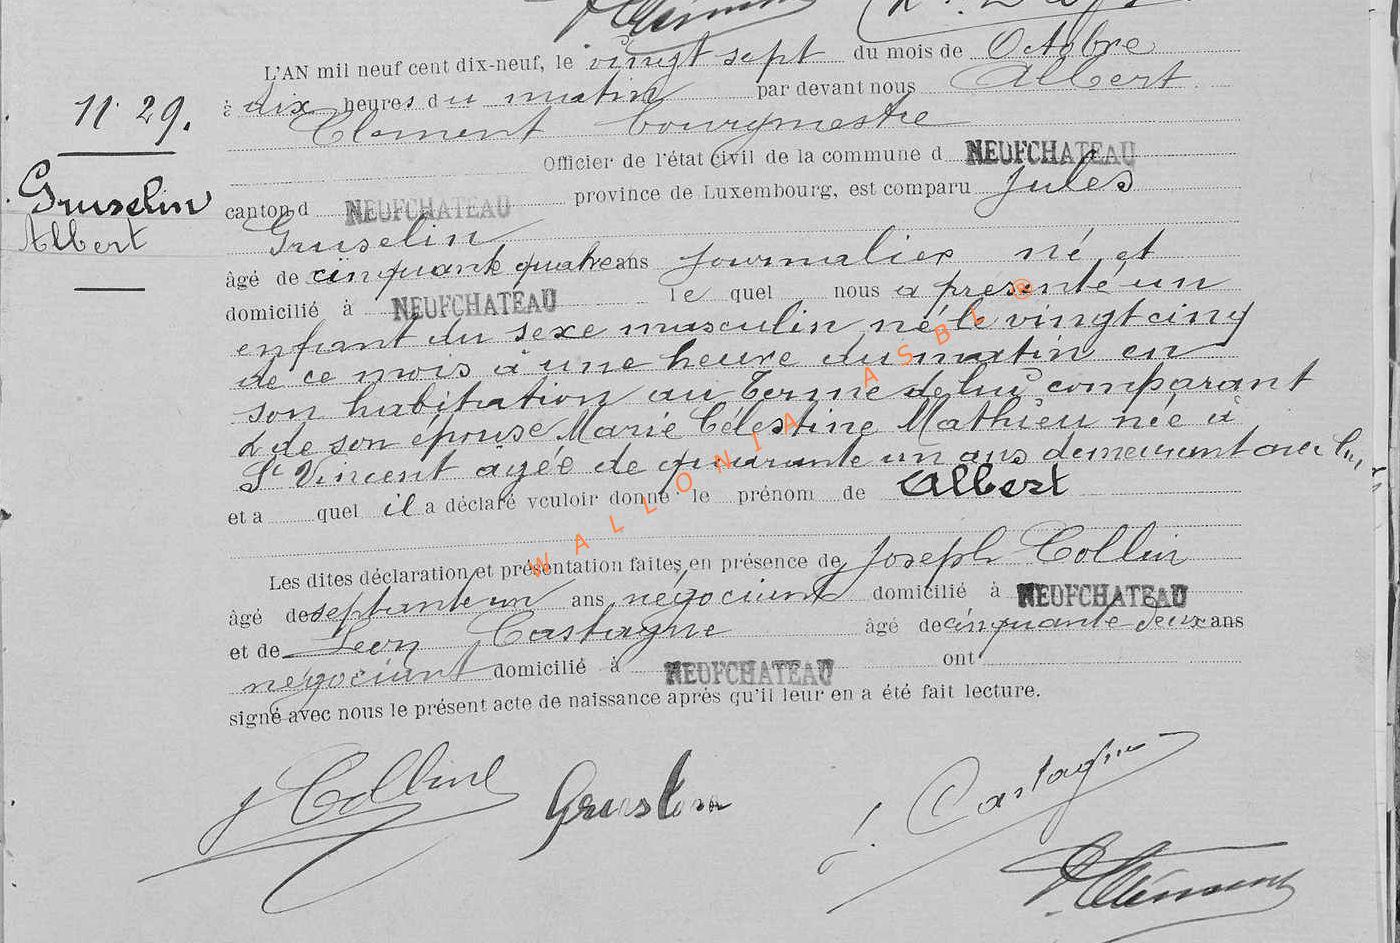 L'AN mil neuf cent dix-neuf, le vingt sept du mois de Octobre
à dix heures du matin par devant nous Albert
Clement bourgmestre
Officier de l'état civil de la commune d NEUFCHATEAU
canton d NEUFCHATEAU province de Luxembourg, est comparu Jules
Gruselin
âgé de cinquante quatre ans journalier né et
domicilié à NEUFCHATEAU le quel nous a présenté un
enfant du sexe masculin né le vingt cinq
de ce mois à une heure du matin en
son habitation au Terme de lui comparant
& de son épouse Marie Célestine Mathieu née à
St Vincent agée de quarante un ans demeurant avec lui
et a quel il a déclaré vouloir donner le prénom de Albert
Les dites déclaration et présentation faites en présence de Joseph Collin
âgé de septante un ans négociant domicilié à NEUFCHATEAU
et de Leon Castagne âgé de cinquante deux ans
négociant domicilié à NEUFCHATEAU ont
signé avec nous le présent acte de naissance après qu'il leur en a été fait lecture.
11 29.
Gruselin
Albert
J Collin
Gruslin
Castagne
A Clément
WALLONIA ASBL ®